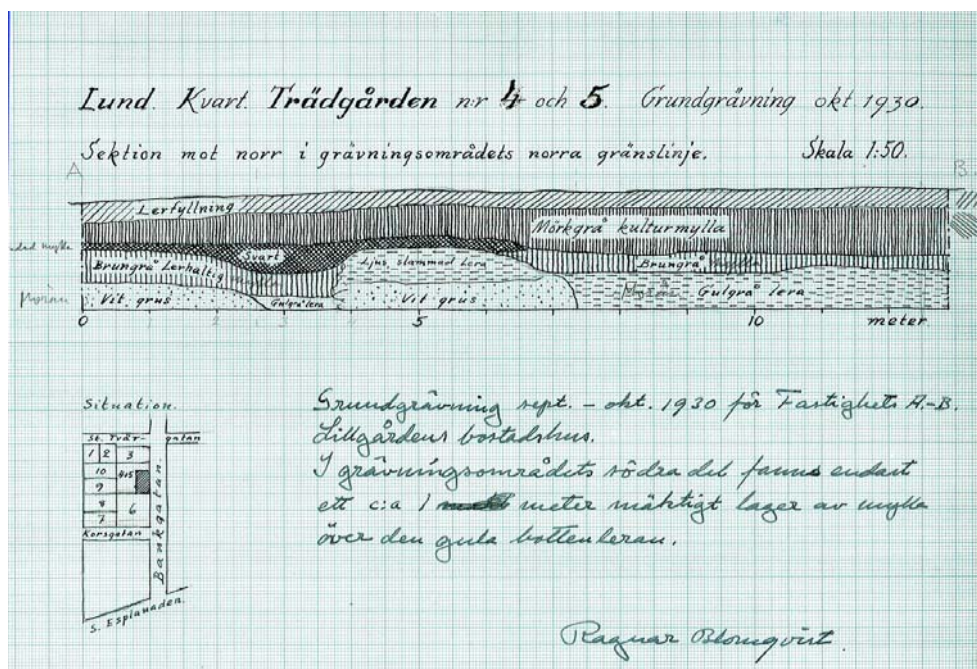 Lund. Kvart. Trädgården n:r 4 och 5. Grundgrävning okt. 1930.
Sektion mot norr i grävningsområdets norra gränslinje. Skala 1:50.
A B
Lerfyllning
Mörkgrå kulturmylla
Svart
Brungrå Lerhaltig
Ljus, slammad Lera
Brungrå mylla
Vit grus
Gulgrå lera
Vit grus
Gulgrå lera
0 1 2 3 5 10 meter
Situation.
St. Tvär- gatan
1 2 3
10 4o5
9
8 6
7
Korsgatan
Bankgatan.
S. Esplanaden.
Grundgrävning sept. – okt. 1930 för Fastighets A.-B.
Lillgårdens bostadshus.
I grävningsområdets södra del fanns endast
ett c:a 1 meter mäktigt lager av mylla
över den gula bottenleran.
Ragnar Blomqvist.